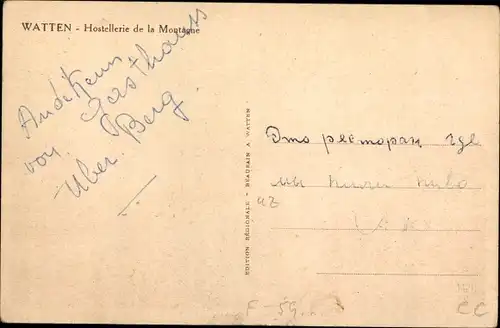 WATTEN - Hostellerie de la Montagne
Andeken
von Gasthaus
Uber Berg
EDITION RÉGIONALE - BEAUSAIN A WATTEN
Это ресторан где
мы
из
F-59
CC